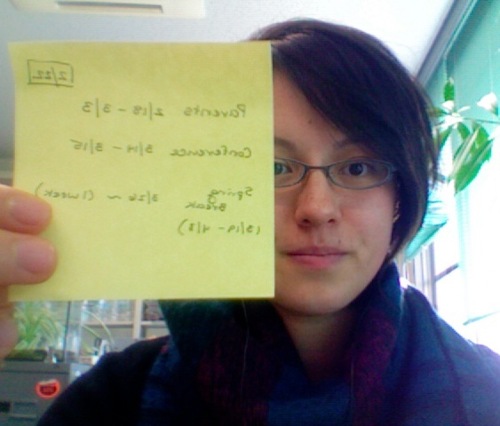 2/22
Parents 2/18 - 3/3
Conference 3/14 - 3/15
Spring Break 3/26 ~ (1 week)
(3/19 - 4/8)